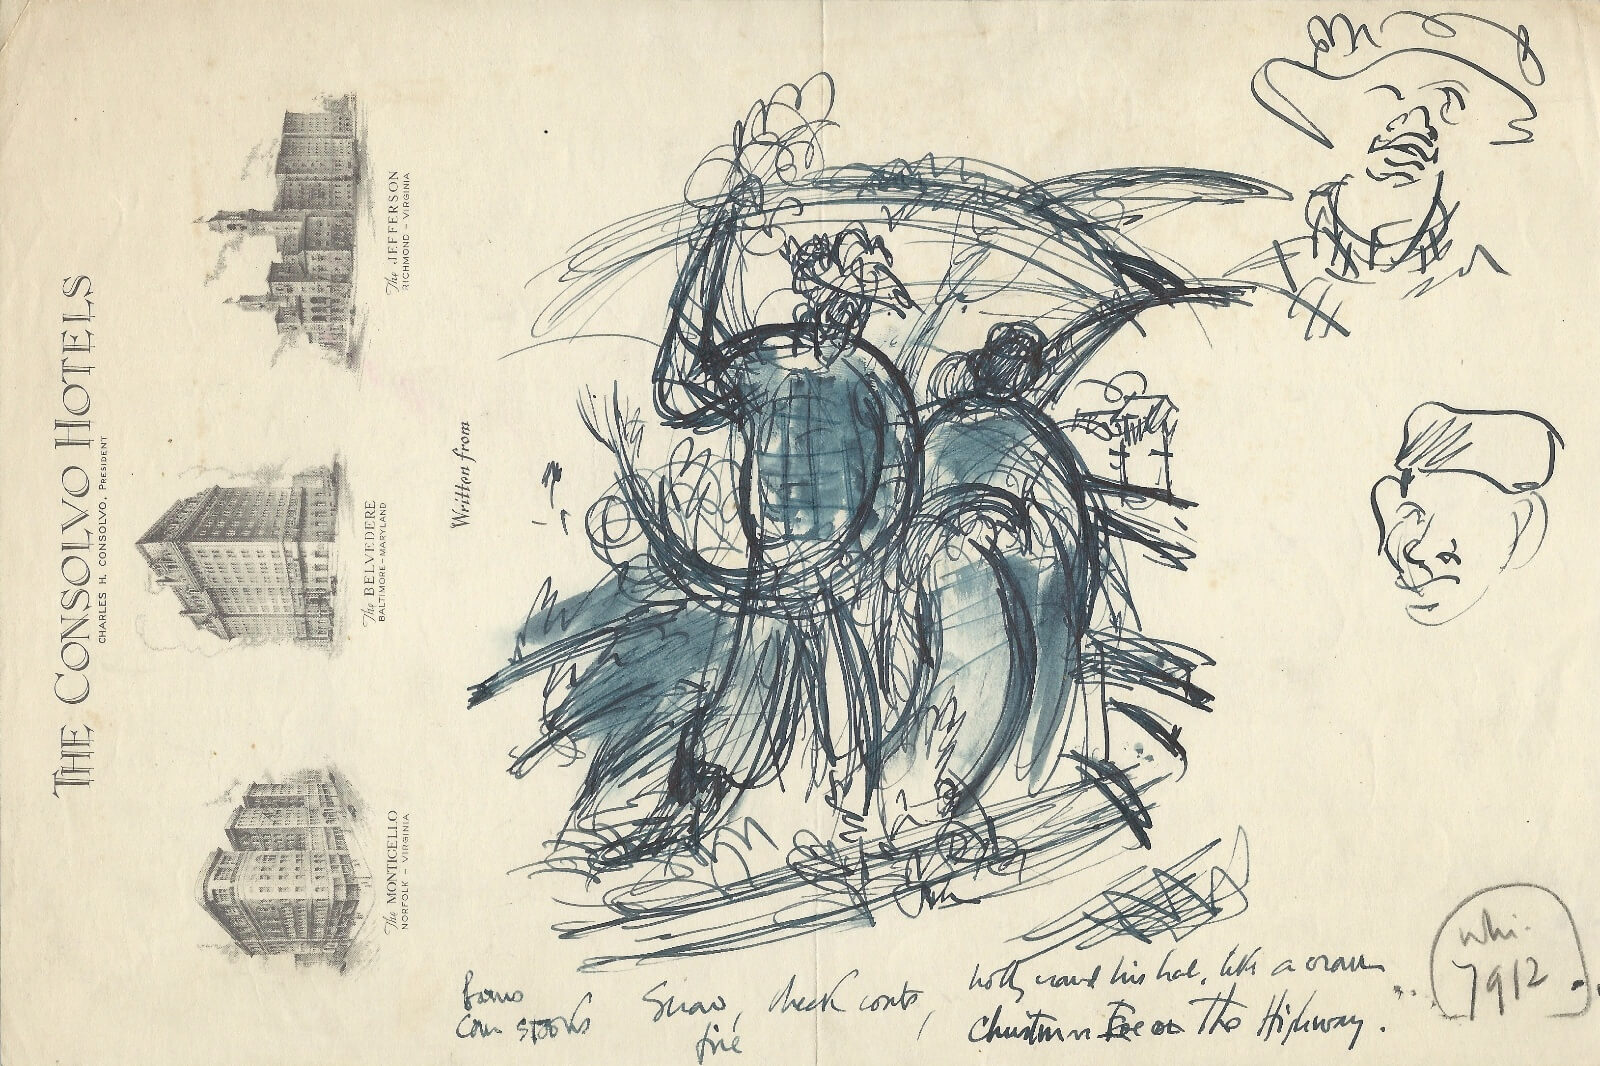 THE CONSOLVO HOTELS
CHARLES H. CONSOLVO, PRESIDENT
The JEFFERSON
RICHMOND – VIRGINIA
The BELVEDERE
BALTIMORE – MARYLAND
The MONTICELLO
NORFOLK – VIRGINIA
Written from
corn stooks
Snow, check coats,
fire
holly round his hat, like a crown
Christmas Eve on The Highway.
whi.
7912